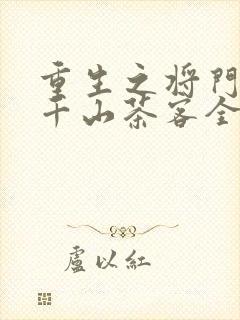 重生之将門
千山茶客全
盧以紅